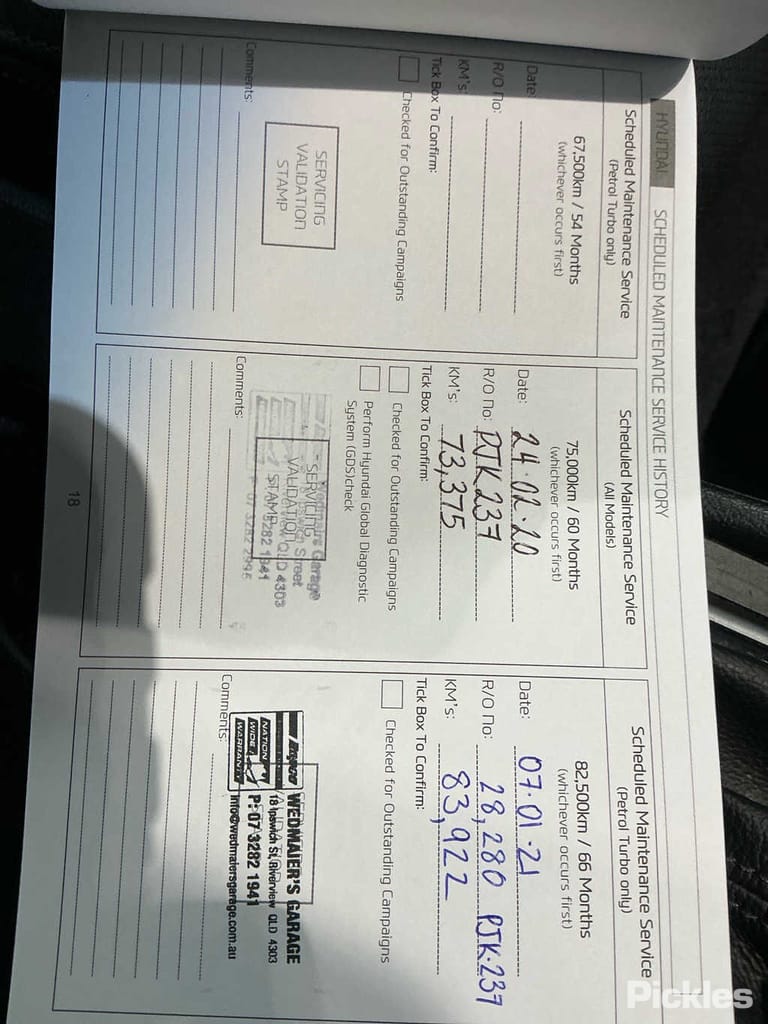 HYUNDAI
SCHEDULED MAINTENANCE SERVICE HISTORY
Scheduled Maintenance Service
(Petrol Turbo only)
67,500km / 54 Months
(whichever occurs first)
Date:
R/O No:
KM's:
Tick Box To Confirm:
Checked for Outstanding Campaigns
SERVICING
VALIDATION
STAMP
Comments:
Scheduled Maintenance Service
(All Models)
75,000km / 60 Months
(whichever occurs first)
Date: 24.02.20
R/O No: PJK237
KM's: 73,375
Tick Box To Confirm:
Checked for Outstanding Campaigns
Perform Hyundai Global Diagnostic
System (GDS)check
SERVICING
VALIDATION
STAMP
Garage
Street
QLD 4303
3282 1941
07 3282 2995
Comments:
Scheduled Maintenance Service
(Petrol Turbo only)
82,500km / 66 Months
(whichever occurs first)
Date: 07.01.21
R/O No: 28,280 PJK.237
KM's: 83,922
Tick Box To Confirm:
Checked for Outstanding Campaigns
WEDMAIER'S GARAGE
18 Ipswich St, Riverview QLD 4303
P: 07 3282 1941
info@wedmaiersgarage.com.au
NATION
WIDE
WARRANTY
Comments:
18
Pickles